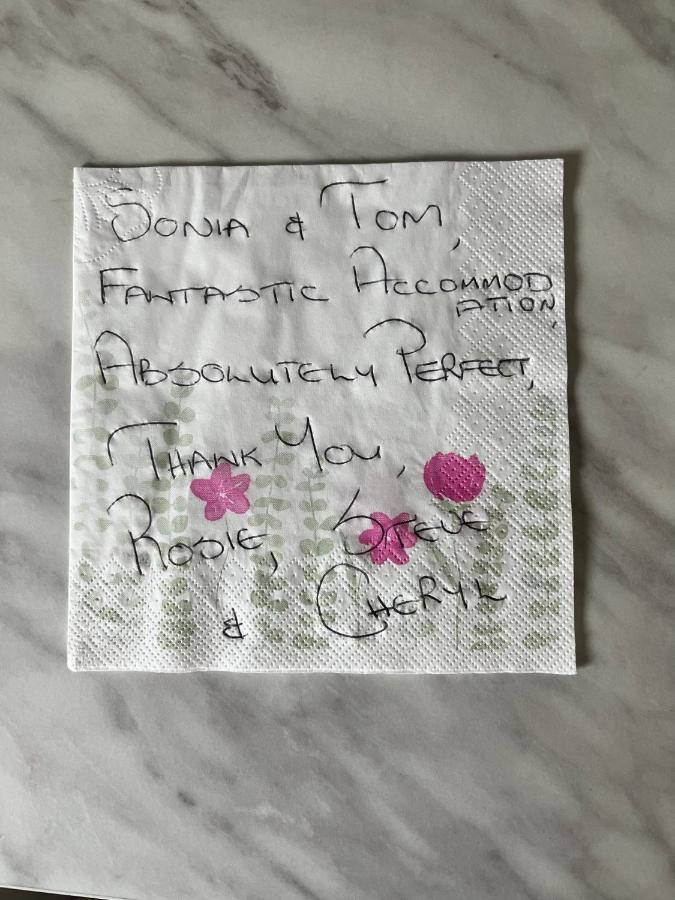 SONIA & TOM,
FANTASTIC ACCOMMOD
ATION,
ABSOLUTELY PERFECT,
THANK YOU,
ROSIE, STEVE
& CHERYL